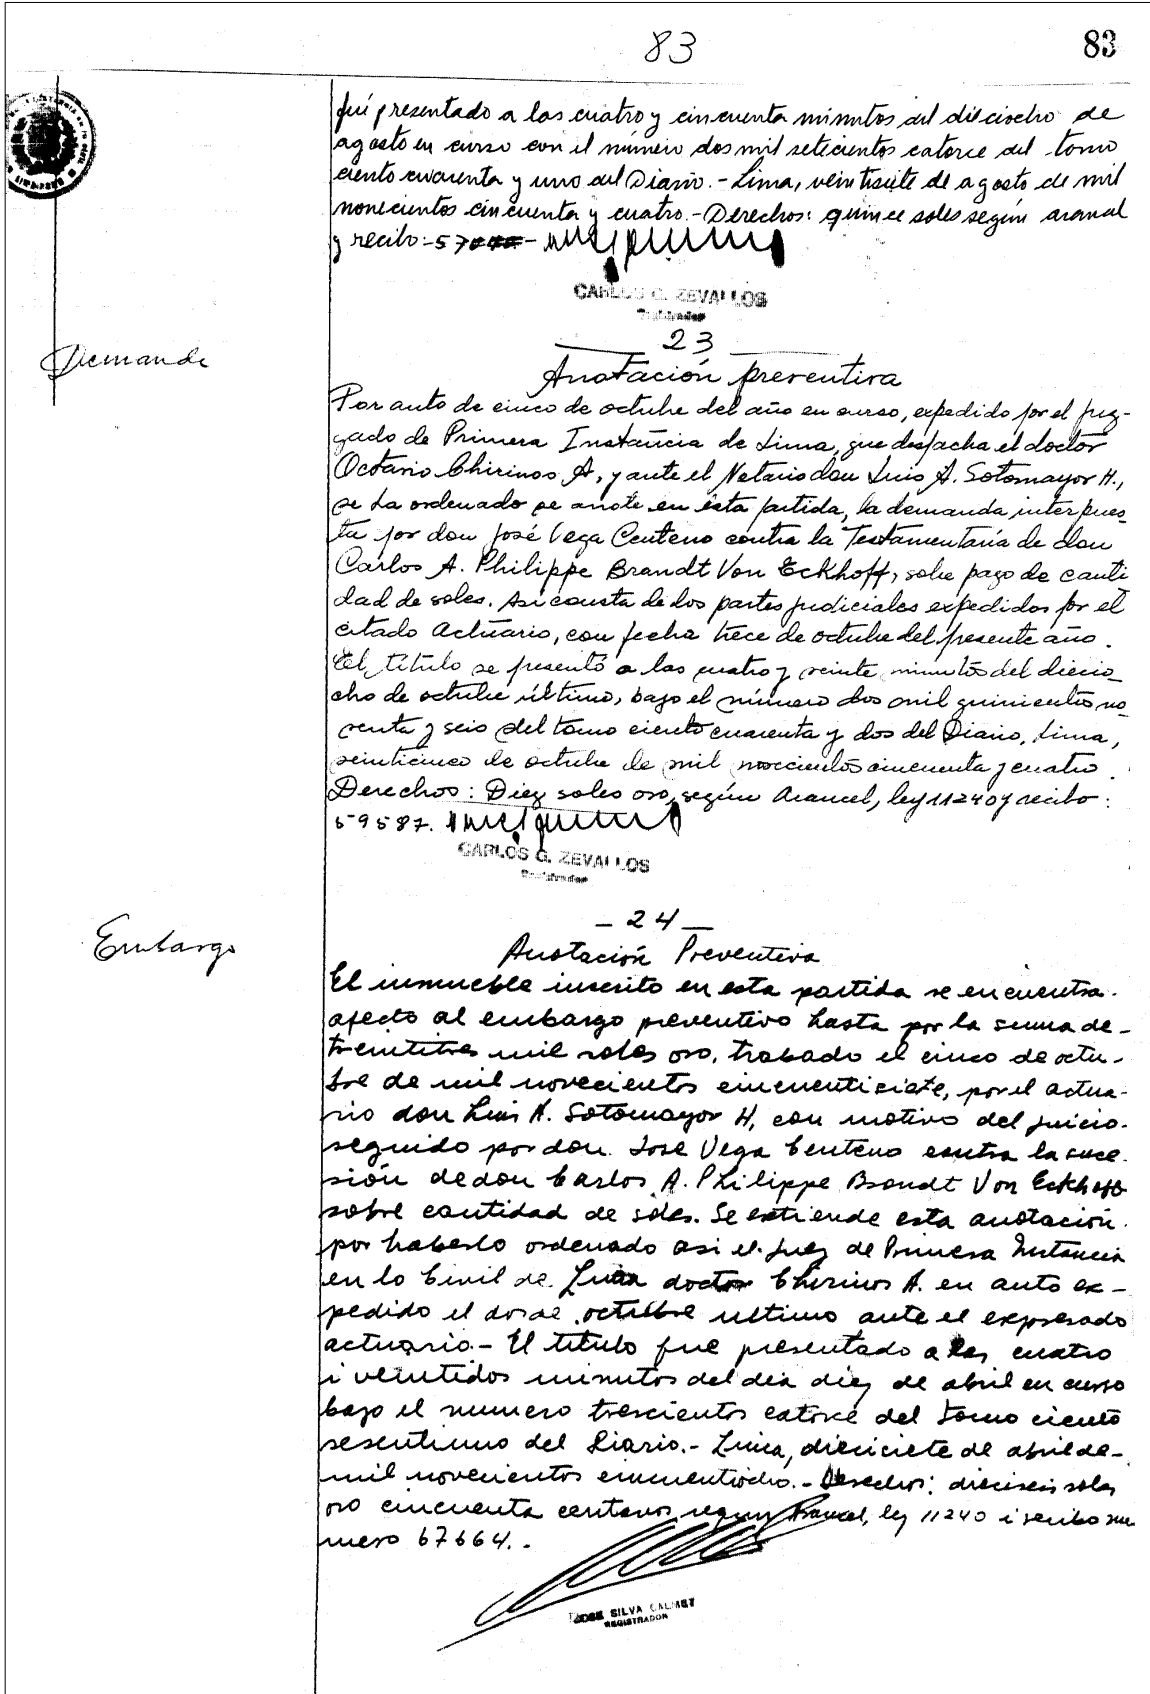 83 83
fué presentado a las cuatro y cincuenta minutos del dieciocho de
agosto en curso con el número dos mil setecientos catorce del tomo
ciento cuarenta y uno del Diario.- Lima, veintisiete de agosto de mil
novecientos cincuenta y cuatro.- Derechos: quince soles según arancel
y recibo:-
CARLOS G. ZEVALLOS
Registrador
23
Demanda
Anotación preventiva
Por auto de cinco de octubre del año en curso, expedido por el Juz-
gado de Primera Instancia de Lima, que despacha el doctor
Octavio Chirinos A, y ante el Notario don Luis A. Sotomayor H.,
se ha ordenado se anote en esta partida, la demanda interpues_
ta por don José Vega Centeno contra la Testamentaría de don
Carlos A. Philippe Brandt Von Eckhoff, sobre pago de canti
dad de soles. Así consta de los partes judiciales expedidos por el
citado Actuario, con fecha trece de octubre del presente año.
El título se presentó a las cuatro y veinte minutos del diecio_
cho de octubre último, bajo el número dos mil quinientos no_
venta y seis del tomo ciento cuarenta y dos del Diario, Lima,
veinticinco de octubre de mil novecientos cincuenta y cuatro.
Derechos: Diez soles oro, según Arancel, ley 11240 y recibo:
59587.
CARLOS G. ZEVALLOS
Registrador
- 24 -
Embargo
Anotación Preventiva
El inmueble inscrito en esta partida se encuentra.
afecto al embargo preventivo hasta por la suma de-
treintitres mil soles oro, trabado el cinco de octu-
bre de mil novecientos cincuentisiete, por el actua-
rio don Luis A. Sotomayor H, con motivo del juicio.
seguido por don Jose Vega Centeno contra la suce.
sión de don Carlos A. Philippe Brandt Von Eckhoff
sobre cantidad de soles. Se extiende esta anotación.
por haberlo ordenado asi el Juez de Primera Instancia
en lo Civil de Lima doctor Chirinos A. en auto ex-
pedido el dos de octubre ultimo ante el expresado
actuario.- El titulo fue presentado a las cuatro
i veintidos minutos del dia diez de abril en curso
bajo el numero trescientos catorce del tomo ciento
sesentiuno del Diario.- Lima, diecisiete de abril de-
mil novecientos cincuentiocho.- Derechos: dieciseis soles
oro cincuenta centavos segun Arancel, ley 11240 i recibo nu
mero 67664.-
JOSE SILVA CALMET
REGISTRADOR